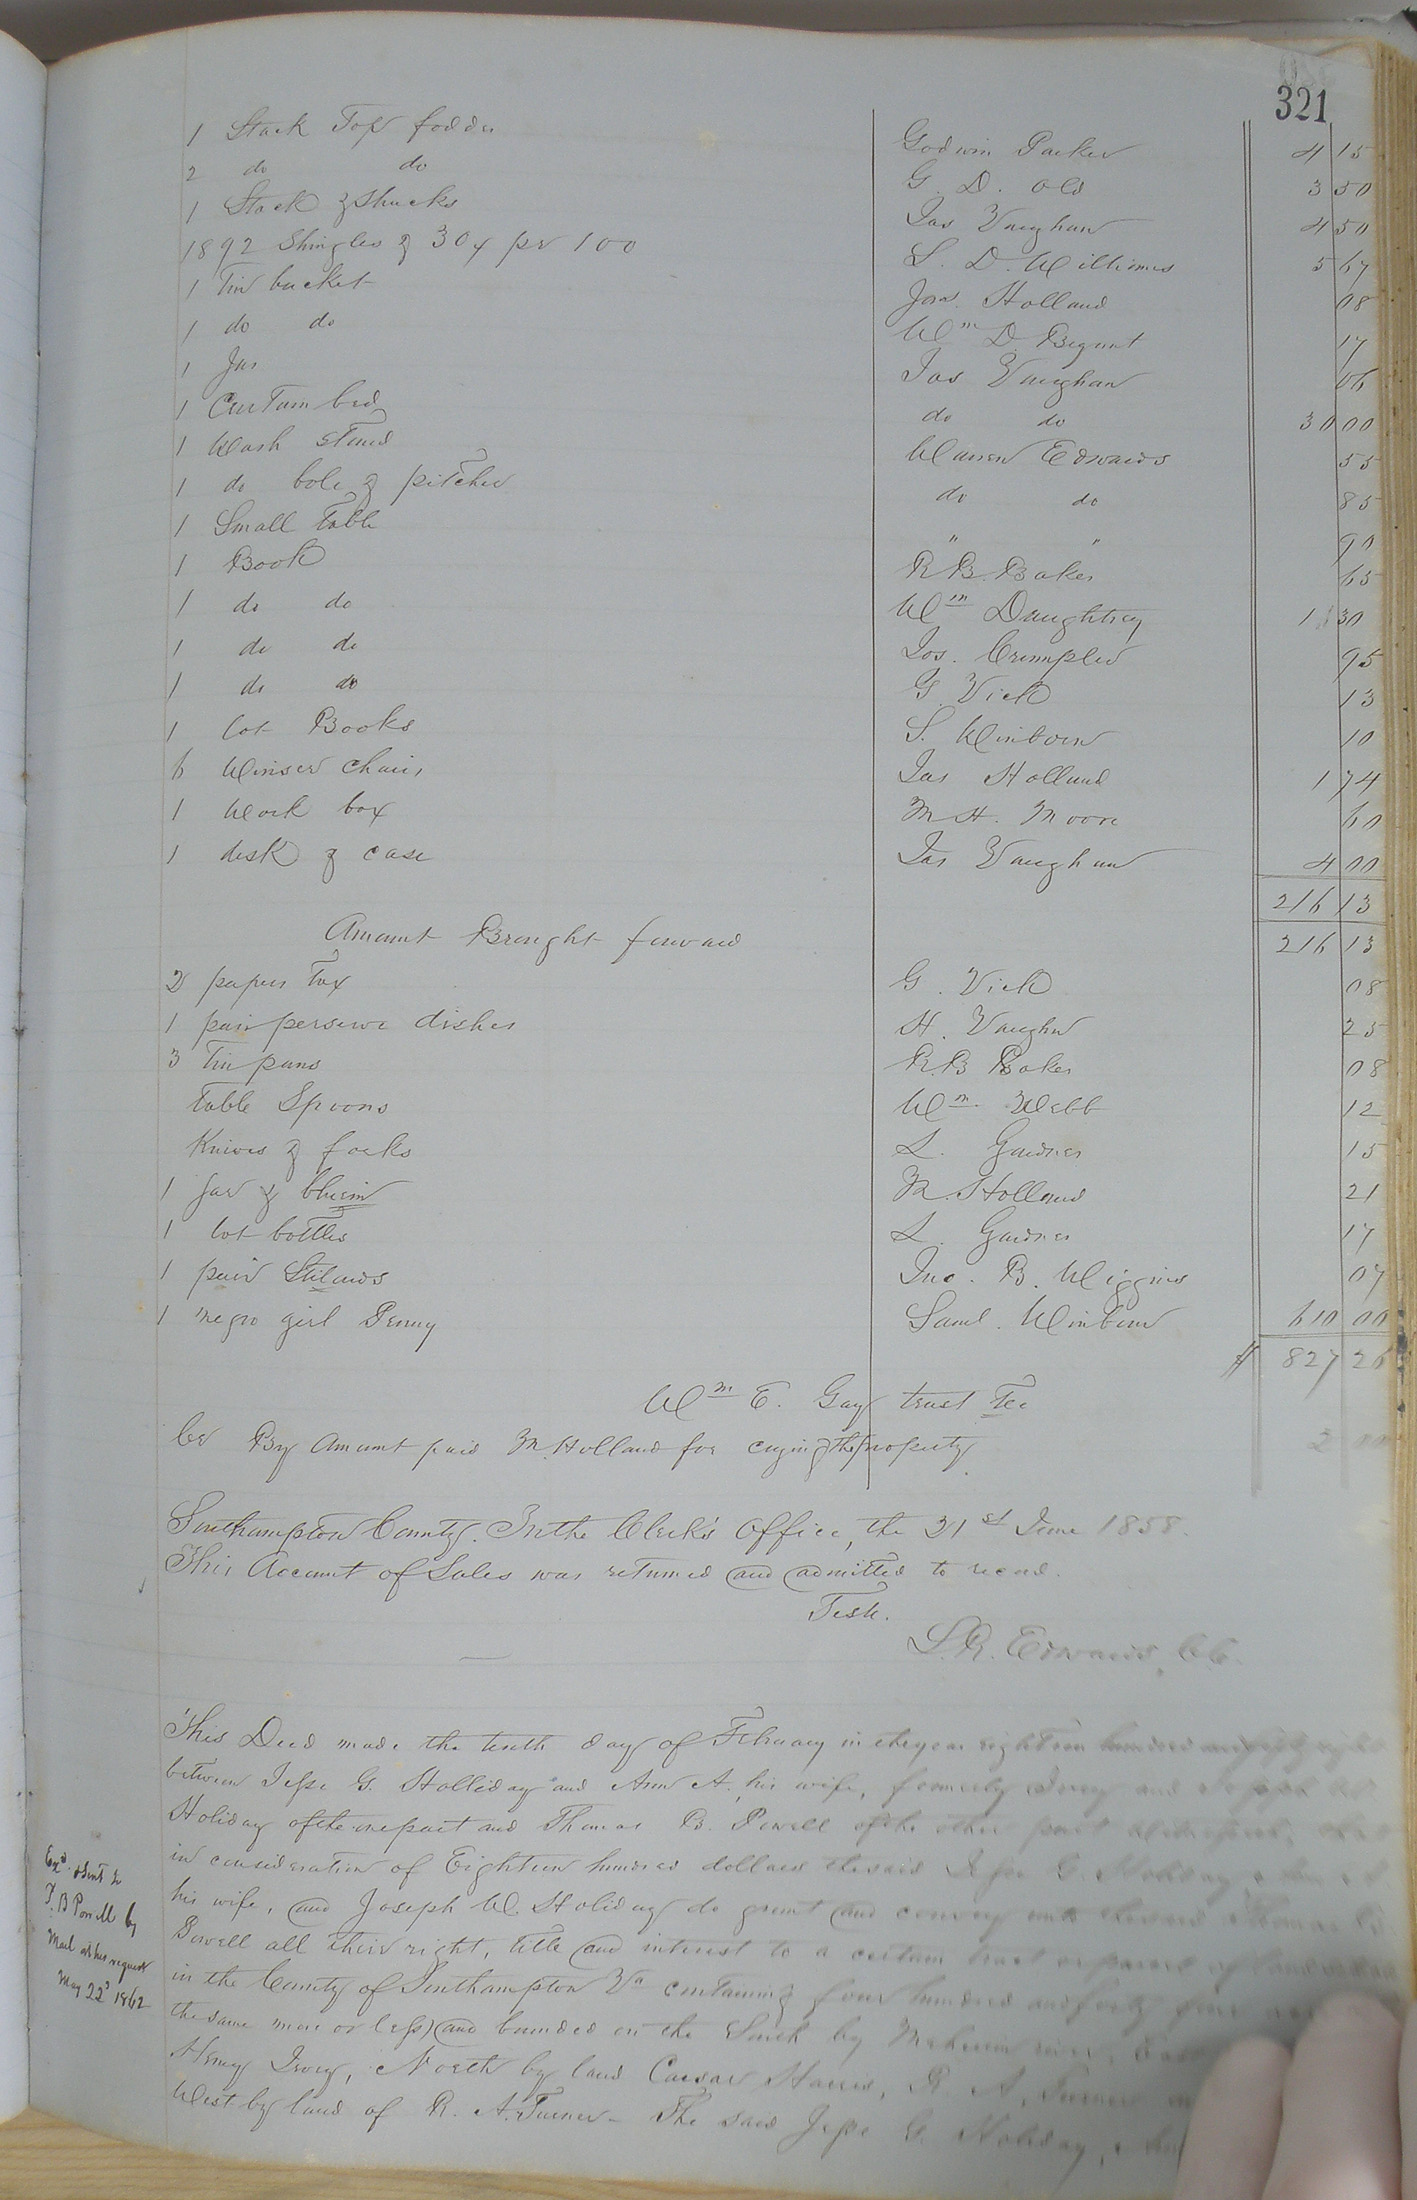 321
1 Stack Top fodder Godwin Parker 4 15
2 do do G. D. Old 3 50
1 Stack & Shucks Jas Vaughan 4 50
1892 Shingles & 30¢ pr 100 S. D. Williams 5 67
1 Tin bucket Jas. Holland 08
1 do do Wm D. 17
1 Jar Jas Vaughan 06
1 Curtain bed do do 30 00
1 Wash stand Warren Edwards 55
1 do bole & pitcher do do 85
1 Small Table " " 90
1 Book R. B. Baker 65
1 do do Wm Daughtrey 1 30
1 do do Jos. Crumpler 95
1 do do G. Vick 13
1 lot Books S. Winborn 10
6 Winser chairs Jas Holland 1 74
1 Work box M. H. Moore 60
1 desk & case Jas Vaughan 4 00
216 13
Amount Brought forward 216 13
2 papers Tax G. Vick 08
1 pair perserve dishes H. Vaughn 25
3 Tin pans R. B Baker 08
Table Spoons Wm Webb 12
Knives & forks L. Gardner 15
1 Jar & M. Holland 21
1 lot bottles L. Gardner 17
1 pair Stilards Jno. B. Wiggins 07
1 negro girl Penny Saml. Winborn 610 00
$ 827 26
Wm E. Gay trust Tee
Cr By Amount paid M. Holland for crying the property 2 00
Southampton County. In the Clerk's Office, the 21st June 1858.
This Account of Sales was returned and admitted to record.
Teste.
L. R. Edwards, C.C.
This Deed made the tenth day of February in the year eighteen hundred and fifty eight
between Jesse G. Holliday and Ann A. his wife, formerly Ivey and Joseph W.
Holiday of the one part and Thomas B. Powell of the other part Witnesseth, that
in consideration of Eighteen hundred dollars the said Jesse G. Holiday & Ann A.
his wife, and Joseph W. Holiday do grant and convey unto the said Thomas B.
Powell all their right, title and interest to a certain tract or parcel of land
in the County of Southampton Va containing four hundred and forty four
the same more or less) and bounded on the South by Meherrin river, East
Henry Ivey, North by land Caesar Harris, R. A. Turner
West by land of R. A. Turner - The said Jesse G. Holiday, & Ann
Exd. & Sent to
T. B Powell by
Mail at his request
May 22d 1862